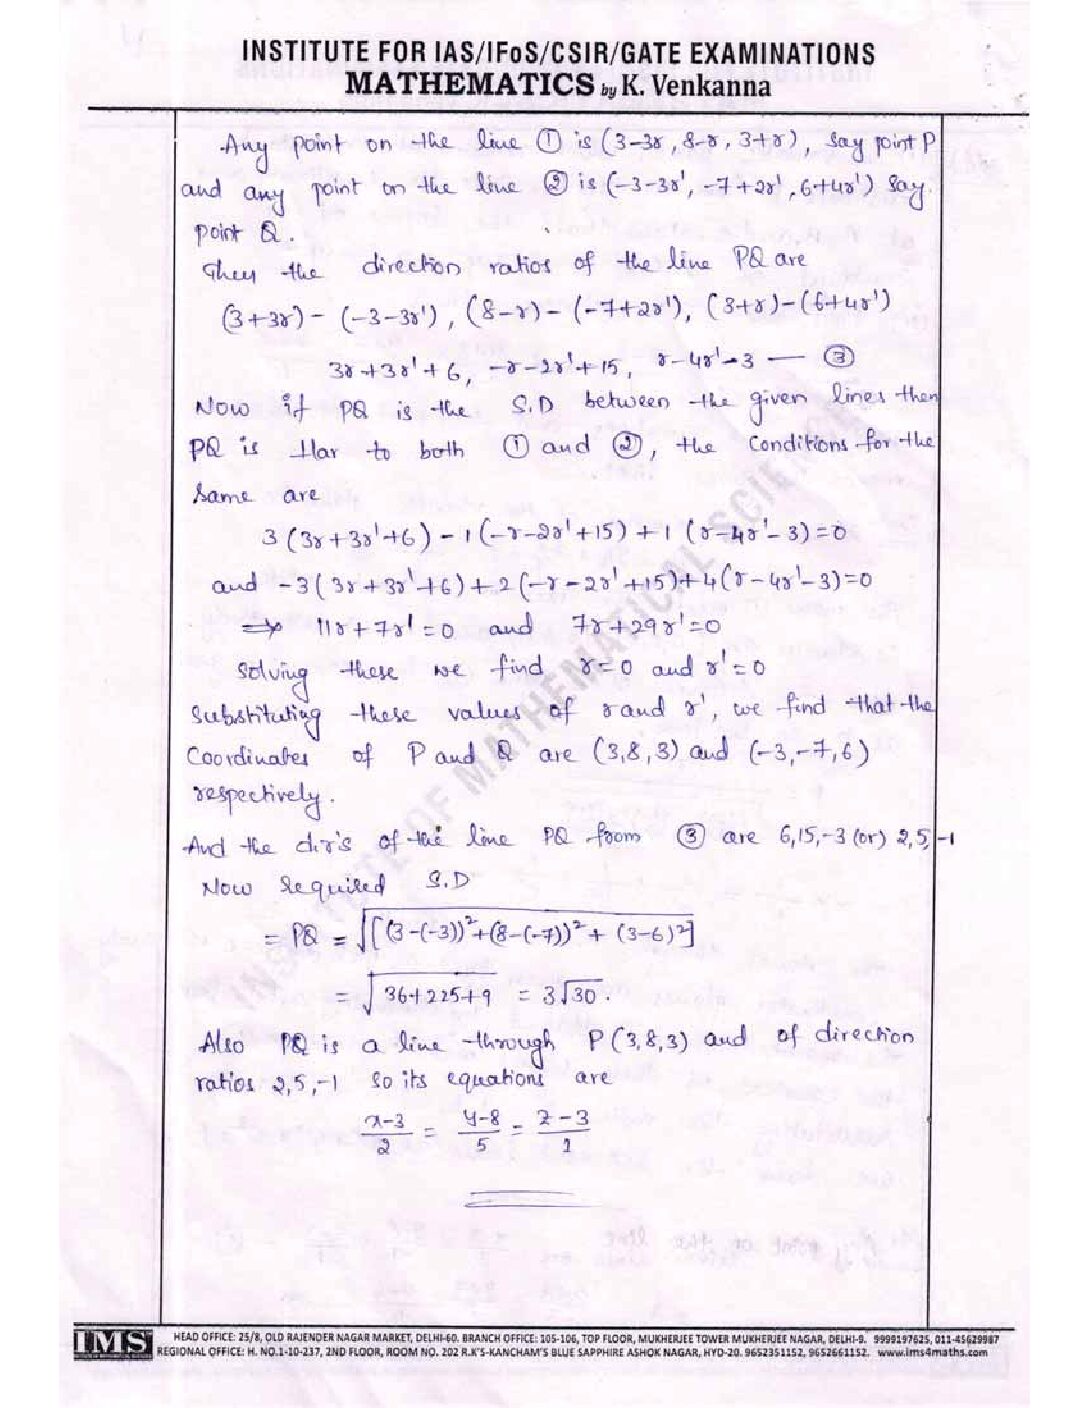 INSTITUTE FOR IAS/IFoS/CSIR/GATE EXAMINATIONS
MATHEMATICS by K. Venkanna
Any point on the line ① is (3-3r, 8-r, 3+r), say point P
and any point on the line ② is (-3-3r', -7+2r', 6+4r') say
point Q.
Then the direction ratios of the line PQ are
(3+3r) - (-3-3r'), (8-r) - (-7+2r'), (3+r)-(6+4r')
3r+3r'+6, -r-2r'+15, r-4r'-3 — ③
Now if PQ is the S.D between the given lines then
PQ is ⊥lar to both ① and ②, the conditions for the
same are
3(3r+3r'+6) - 1(-r-2r'+15) + 1(r-4r'-3)=0
and -3(3r+3r'+6)+2(-r-2r'+15)+4(r-4r'-3)=0
⇒ 11r+7r'=0 and 7r+29r'=0
Solving these we find r=0 and r'=0
Substituting these values of r and r', we find that the
Coordinates of P and Q are (3,8,3) and (-3,-7,6)
respectively.
And the d.r's of the line PQ from ③ are 6,15,-3 (or) 2,5,-1
Now required S.D
= PQ = √[(3-(-3))²+(8-(-7))²+(3-6)²]
= √36+225+9 = 3√30.
Also PQ is a line through P(3,8,3) and of direction
ratios 2,5,-1 so its equations are
x-3/2 = y-8/5 = z-3/1
INSTITUTE OF MATHEMATICAL SCIENCES
IMS
HEAD OFFICE: 25/8, OLD RAJENDER NAGAR MARKET, DELHI-60. BRANCH OFFICE: 105-106, TOP FLOOR, MUKHERJEE TOWER MUKHERJEE NAGAR, DELHI-9. 9999197625, 011-45629987
REGIONAL OFFICE: H. NO.1-10-237, 2ND FLOOR, ROOM NO. 202 R.K'S-KANCHAM'S BLUE SAPPHIRE ASHOK NAGAR, HYD-20. 9652351152, 9652661152. www.ims4maths.com